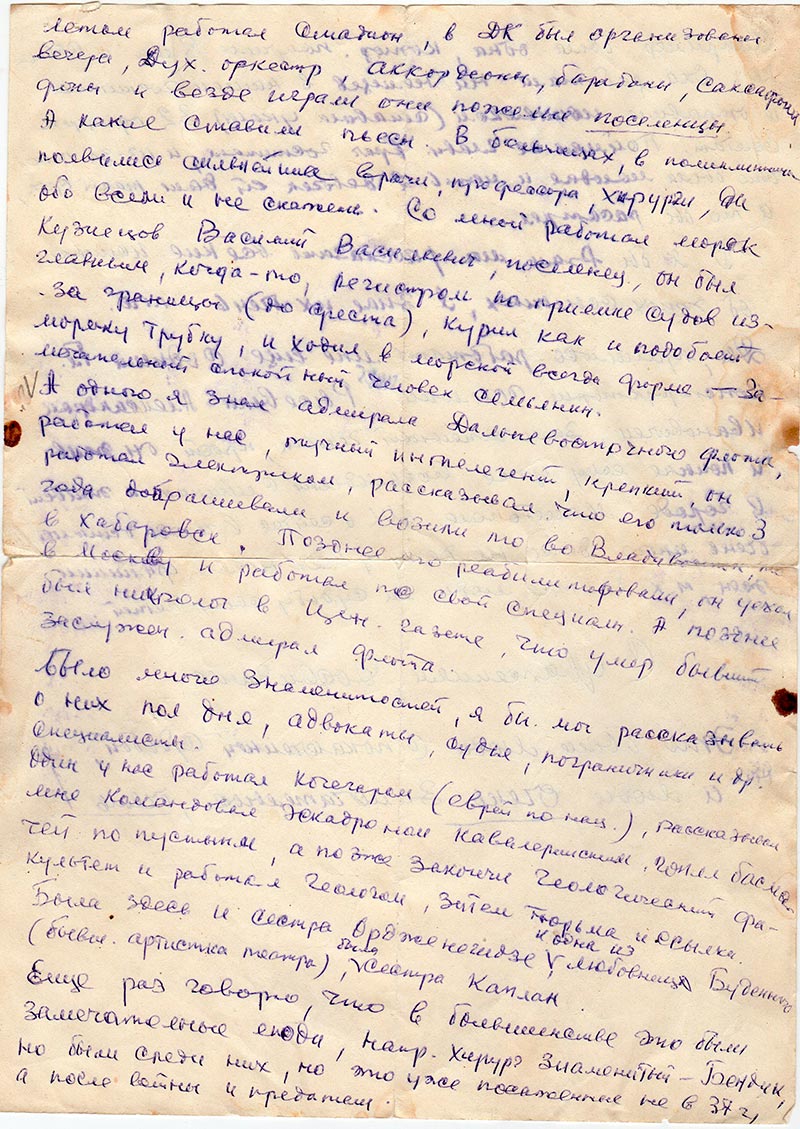 летом работал стадион, в ДК был организовани
вечера, Дух. оркестр, аккордеоны, барабаны, саксо
фоны и везде играли они пожелые поселенцы
А какие ставили пьесы В больницах, в поликлиниках
появились сильнейшие врачи, профессора, хирурги, да
обо всем и не скажешь. Со мной работал моряк
Кузнецов Василий Васильевич, поселенец, он был
главным, когда-то, регистром по приемке судов из-
за границы (до ареста), курил как и подобает
моряку Трубку, и ходил в морской всегда форме — За-
мечательный спокойный человек семьянин.
А одного я знал адмирала Дальневосточного флота,
работал у нас, тучный интелегент, крепкий, он
работал электриком, рассказывал что его только 3
года допрашивали и возили то во Владивосток, то
в Хабаровск. Позднее его реабилитировали, он уехал
в Москву и работал по свой специальн. А позднее
был некролог в Цен. газете, что умер бывший
заслужен. адмирал флота.
Было много знаменитостей, я бы мог рассказывать
о них пол дня, адвокаты, судья, пограничники и др.
специалисты.
Один у нас работал кочегаром (еврей по нац.), рассказывал
мне Командовал эскадроном Кавалерийским, гонял басма-
чей по пустыням, а позже закончил геологический фа-
культет и работал геологом, затем тюрьма и ссылка.
Была здесь и сестра Орджоникидзе, и одна из любовниц Буденного
(бывш. артистка театра), была сестра Каплан.
Еще раз говорю, что в большинстве это были
замечательные люди, напр. хирург знаменитый – Бендик,
но были среди них, но это уже посаженные не в 37 г,
а после войны и предатели.